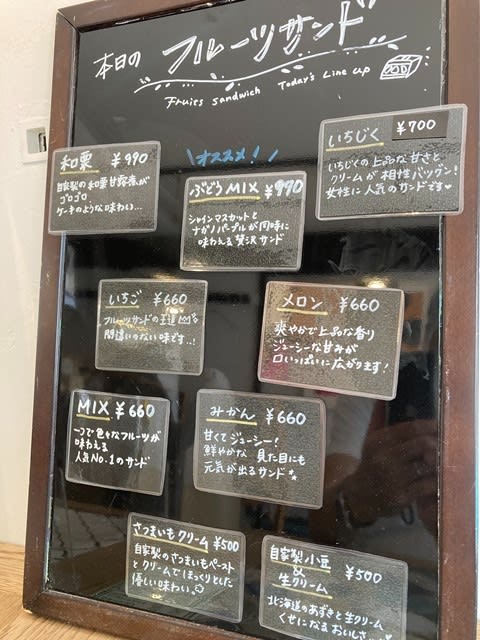 本日の フルーツサンド
Fruies sandwich Today's Line up
和栗 ¥990
自家製の和栗甘露煮が
ゴロゴロ
ケーキのような味わい...
\オススメ!/
ぶどうMIX ¥990
シャインマスカットと
ナガノパープルが同時に
味わえる贅沢サンド
いちじく ¥700
いちじくの上品な甘さと
クリームが相性バツグン!
女性に人気のサンドです♥
いちご ¥660
フルーツサンドの王道
間違いのない味です..!
メロン ¥660
爽やかで上品な香り
ジューシーな甘みが
口いっぱいに広がります!
MIX ¥660
一つで色々なフルーツが
味わえる
人気No.1のサンド
みかん ¥660
甘くてジューシー!
鮮やかな 見た目にも
元気が出るサンド
さつまいもクリーム ¥500
自家製のさつまいもペースト
とクリームでほっくりとした
優しい味わい
自家製小豆
&
生クリーム ¥500
北海道のあずきと生クリーム
くせになるおいしさ